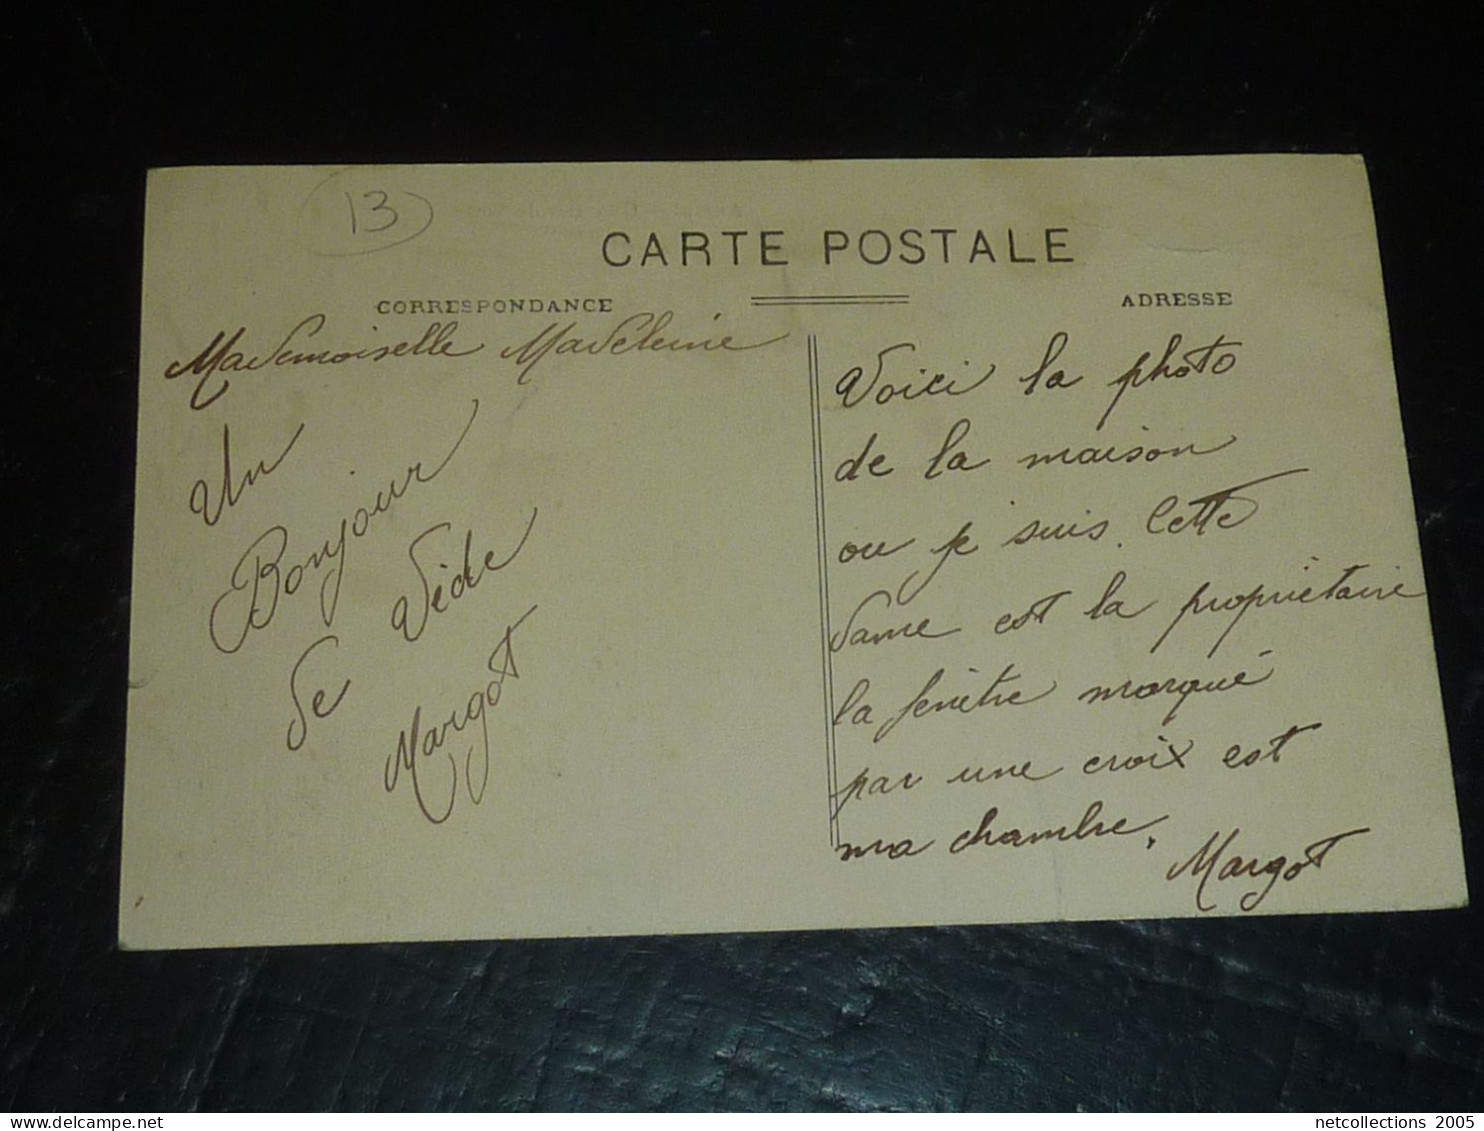 13
CARTE POSTALE
CORRESPONDANCE
ADRESSE
Mademoiselle Madeleine
Un
Bonjour
de Vède
Margot
Voici la photo
de la maison
ou je suis. Cette
dame est la propriétaire
la fenêtre marqué
par une croix est
ma chambre.
Margot
netcollections 2005